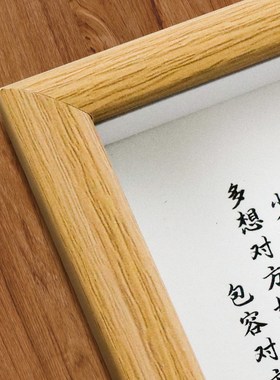 多想对方
包容对